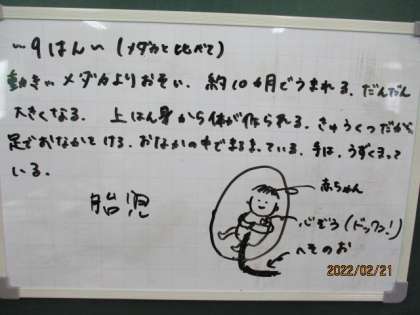 い9はんい（メダカと比べて）
動きはメダカよりおそい．約10カ月でうまれる．だんだん
大きくなる．上はん身から体が作られる．きゅうくつだから
足でおなかをける．おなかの中でまるまっている．手は、うずくまって
いる．
胎児
赤ちゃん
心ぞう（ドックン！）
へそのお
2022/02/21